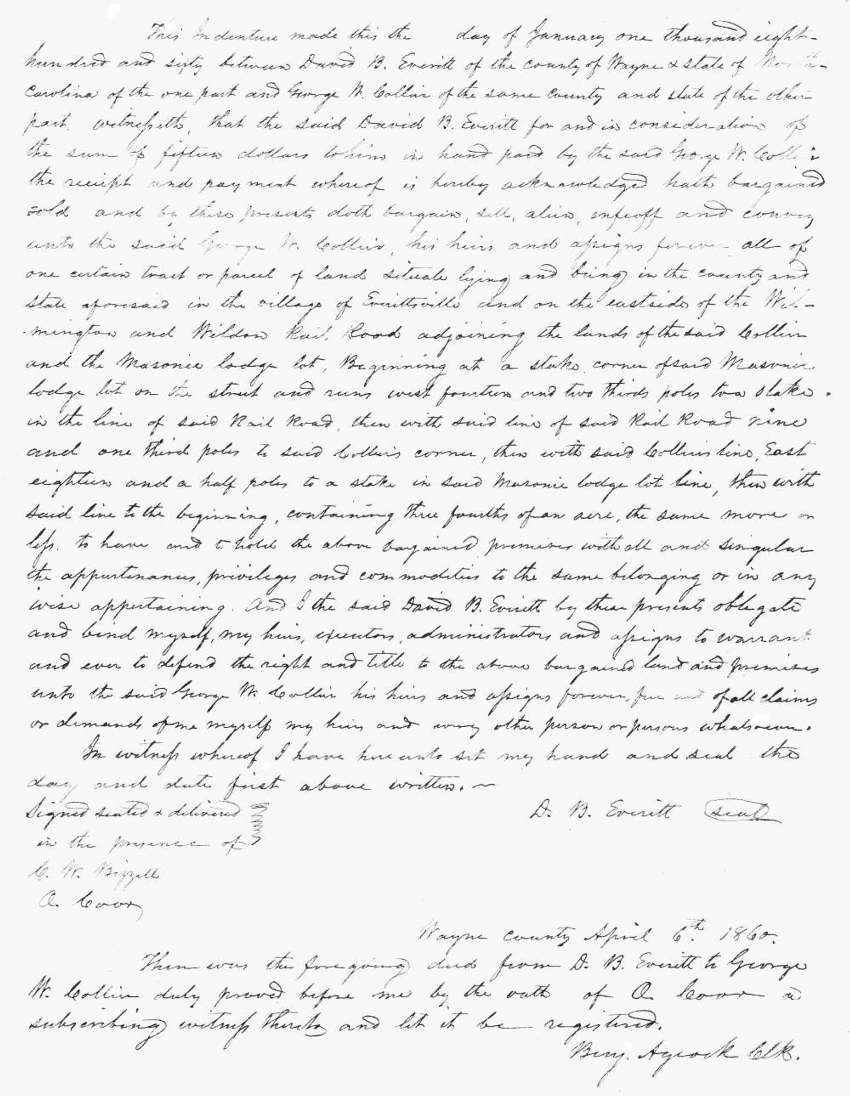 This Indenture made this the day of January one thousand eight-
hundred and sixty between David B. Everitt of the county of Wayne & state of North-
carolina of the one part and George W. Collier of the same county and state of the other
part, witnesseth, that the said David B. Everitt for and in consideration of
the sum of fifteen dollars to him in hand paid by the said George W. Collier
the receipt and payment whereof is hereby acknowledged hath bargained
sold and by these presents doth bargain, sell, alien, enfeoff and convey
unto the said George W. Collier, his heirs and assigns forever all of
one certain tract or parcel of land situate lying and being in the county and
state aforesaid in the village of Everittsville and on the east side of the Wil-
-mington and Weldon Rail Road adjoining the lands of the said Collier
and the Masonic lodge lot, Beginning at a stake, corner of said Masonic
lodge lot on the street and runs west fourteen and two thirds poles to a stake.
in the line of said Rail Road, then with said line of said Rail Road nine
and one third poles to said Colliers corner, then with said Colliers line, East
eighteen and a half poles to a stake in said Masonic lodge lot line, then with
said line to the beginning, containing three fourths of an acre, the same more or
less. to have and to hold the above bargained premises with all and singular
the appurtenances, privileges and commodities to the same belonging or in any
wise appertaining. And I the said David B. Everitt by these presents obligate
and bind myself, my heirs, executors, administrators and assigns to warrant
and ever to defend the right and title to the above bargained land and premises
unto the said George W. Collier his heirs and assigns forever, free and of all claims
or demands of me myself my heirs and every other person or persons whatsoever.
In witness whereof I have here unto set my hand and seal the
day and date first above written. ~
Signed sealed & delivered D. B. Everitt seal
in the presence of
C. W. Bizzell
A. Coor
Wayne county April 6th. 1860.
Then was the foregoing deed from D. B. Everitt to George
W. Collier duly proved before me by the oath of A. Coor a
subscribing witness thereto and let it be registered.
Benj. Aycock Clk.